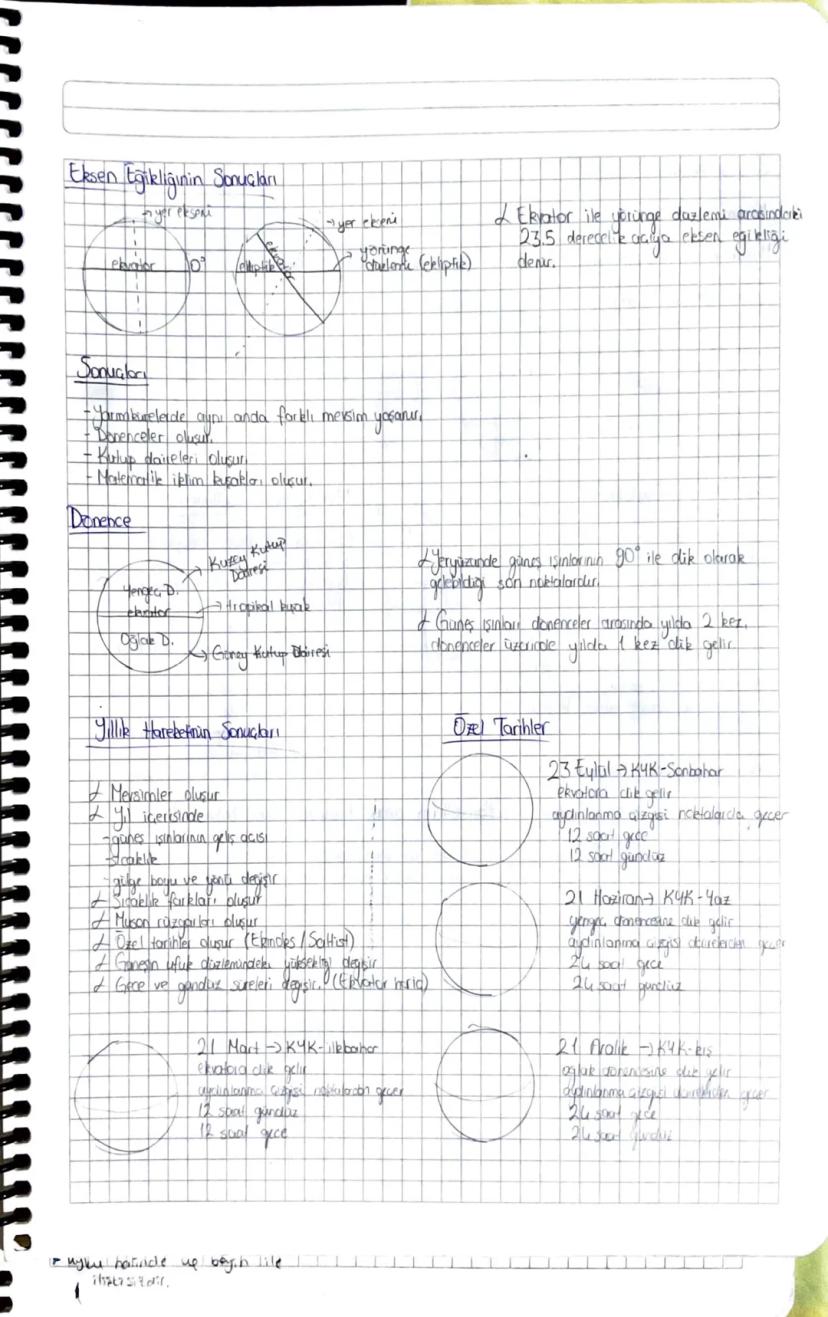 Eksen Eğikliğinin Sonuçları
yer ekseni
ekvator 0°
yer ekseni
ekvator
ekliptik
yörünge
düzlemi (ekliptik)
Ekvator ile yörünge düzlemi arasındaki
23,5 derecelik açıya eksen eğikliği
denir.
Sonuçları
- Yarımkürelerde aynı anda farklı mevsim yaşanır.
- Dönenceler oluşur.
- Kutup daireleri oluşur.
- Matematik iklim kuşakları oluşur.
Dönence
Kuzey Kutup
Dairesi
Yengeç D.
ekvator
Oğlak D.
→ tropikal kuşak
→ Güney Kutup Dairesi
Yeryüzünde güneş ışınlarının 90° ile dik olarak
gelebildiği son noktalardır.
Güneş ışınları dönenceler arasında yılda 2 kez,
dönenceler üzerinde yılda 1 kez dik gelir.
Yıllık Hareketinin Sonuçları
Mevsimler oluşur
Yıl içerisinde
- güneş ışınlarının geliş açısı
- sıcaklık
- gölge boyu ve yönü değişir
Sıcaklık farkları oluşur
Muson rüzgarları oluşur
Özel tarihler oluşur (Ekinoks / Soltist)
Güneşin ufuk düzlemindeki yüksekliği değişir
Gece ve gündüz süreleri değişir. (Ekvator hariç)
Özel Tarihler
23 Eylül → KYK-Sonbahar
ekvatora dik gelir
aydınlanma çizgisi noktalarda geçer
12 saat gece
12 saat gündüz
21 Haziran → KYK-Yaz
yengeç dönencesine dik gelir
aydınlanma çizgisi dairelerden geçer
24 saat gece
24 saat gündüz
21 Mart → KYK-ilkbahar
ekvatora dik gelir
aydınlanma çizgisi noktalardan geçer
12 saat gündüz
12 saat gece
21 Aralık → KYK-kış
oğlak dönencesine dik gelir
aydınlanma çizgisi dairelerden geçer
24 saat gece
24 saat gündüz
uyku halinde